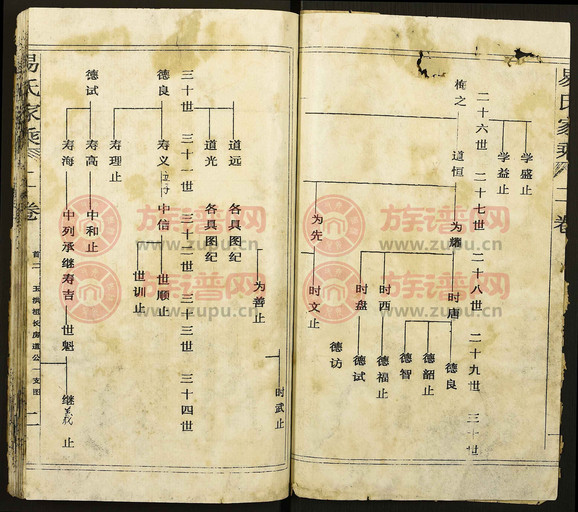 易氏家乘
二卷
二十六世 二十七世 二十八世 二十九世 三十世
梅之
道恒
为耀
时唐
德良
学盛止
学益止
德韶止
德智
时西
德福止
时盘
德试
德访
为先
时文止
为善止
时武止
三十世 三十一世 三十二世 三十三世 三十四世
道远 各具图纪
道光 各具图纪
德良
寿义
中信
世顺止
世训止
寿理止
德试
寿高
中和止
寿海
中列承继寿吉
世魁
继义 止
易氏家乘
二卷
玉洪桓长房道公一支图
族谱网
www.zupu.cn
族谱网
www.zupu.cn
族谱网
www.zupu.cn
族谱网
www.zupu.cn